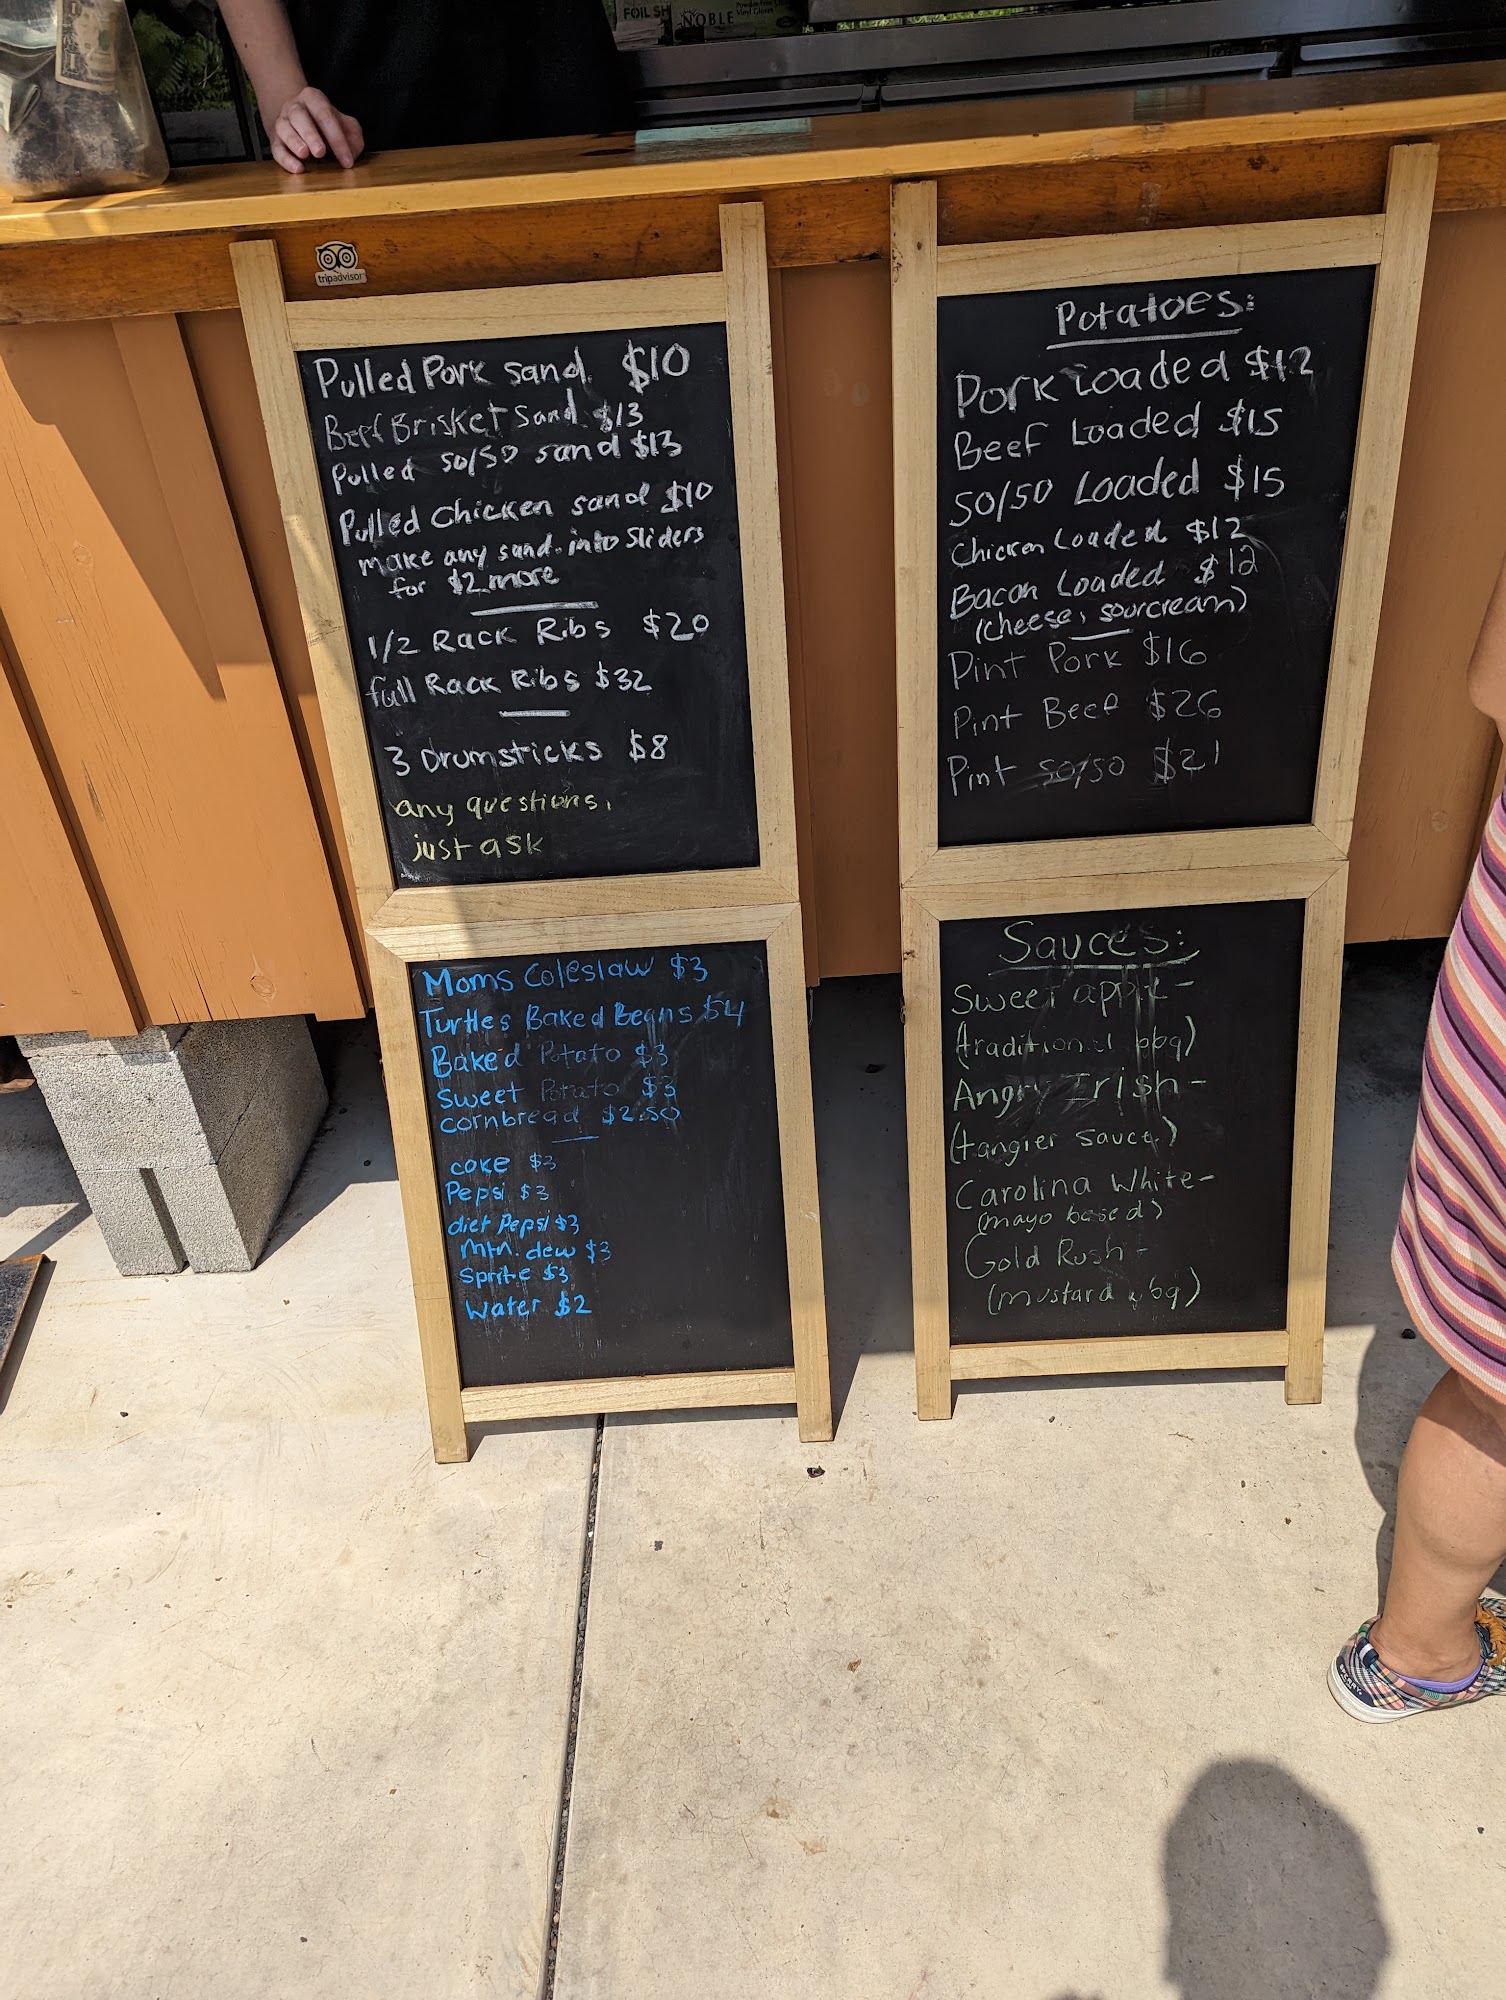 FOIL SH
NOBLE
Vinyl Gloves
tripadvisor
Pulled Pork sand. $10
Beef Brisket Sand $13
Pulled 50/50 sand $13
Pulled Chicken sand $10
make any sand. into Sliders
for $2 more
1/2 Rack Ribs $20
full Rack Ribs $32
3 Drumsticks $8
any questions,
just ask
Moms Coleslaw $3
Turtles Baked Beans $4
Baked Potato $3
Sweet Potato $3
cornbread $2.50
coke $3
Pepsi $3
diet Pepsi $3
mtn. dew $3
Sprite $3
Water $2
Potatoes:
Pork Loaded $12
Beef Loaded $15
50/50 Loaded $15
Chicken Loaded $12
Bacon Loaded $12
(cheese, sourcream)
Pint Pork $16
Pint Beef $26
Pint 50/50 $21
Sauces:
Sweet apple -
(traditional bbq)
Angry Irish -
(tangier sauce)
Carolina White -
(mayo based)
Gold Rush -
(mustard bbq)